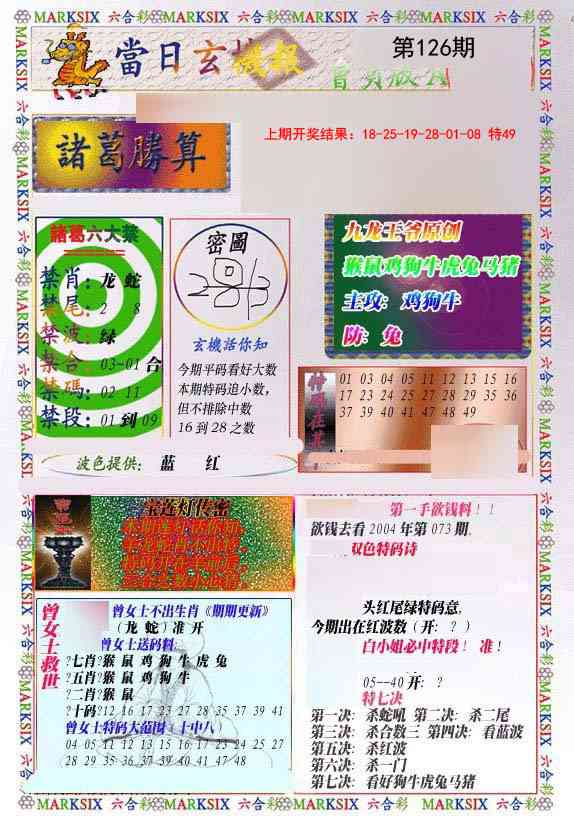 MARKSIX 六合彩 MARKSIX 六合彩 MARKSIX 六合彩 MARKSIX 六合彩
當日玄機報
第126期
上期开奖结果：18-25-19-28-01-08 特49
諸葛勝算
諸葛六大禁
禁肖：龙 蛇
禁尾：2 8
禁波：绿
禁合：03-01合
禁碼：02 11
禁段：01到09
密圖
玄機話你知
今期平码看好大数
本期特码追小数，
但不排除中数
16 到 28 之数
九龙王爷原创
猴鼠鸡狗牛虎兔马猪
主攻：鸡狗牛
防：兔
01 03 04 05 11 12 13 15 16
17 23 24 25 27 28 29 35 36
37 39 40 41 47 48 49
波色提供： 蓝 红
宝莲灯传密
第一手欲钱料！！
欲钱去看 2004 年第 073 期.
双色特码诗
头红尾绿特码意,
今期出在红波数（开：？）
白小姐必中特段！ 准！
05--40 开：？
特七决
第一决：杀蛇吼 第二决：杀二尾
第三决：杀合数三 第四决：看蓝波
第五决：杀红波
第六决：杀一门
第七决：看好狗牛虎兔马猪
曾女士救世
曾女士不出生肖《期期更新》
（龙 蛇）准 开
曾女士送码料:
?七肖?猴 鼠 鸡 狗 牛 虎 兔
?五肖?猴 鼠 鸡 狗 牛
?二肖?猴 鼠
?十码?12 16 17 23 27 28 35 37 39 41
曾女士特码大范围（十中八）
04 05 11 12 13 15 16 17 23 24 25 27
28 29 35 36 37 39 40 41 47 48
MARKSIX 六合彩 MARKSIX 六合彩 MARKSIX 六合彩 MARKSIX 六合彩